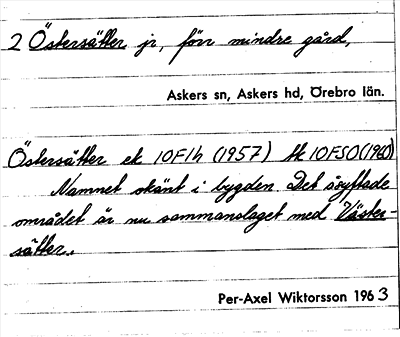 2 Östersätter jr, förr mindre gård,
Askers sn, Askers hd, Örebro län.
Östersätter ek 10F1h (1957) tk 10FSO(1960)
Namnet okänt i bygden. Det åsyftade
området är nu sammanslaget med Väster-
sätter.
Per-Axel Wiktorsson 1963